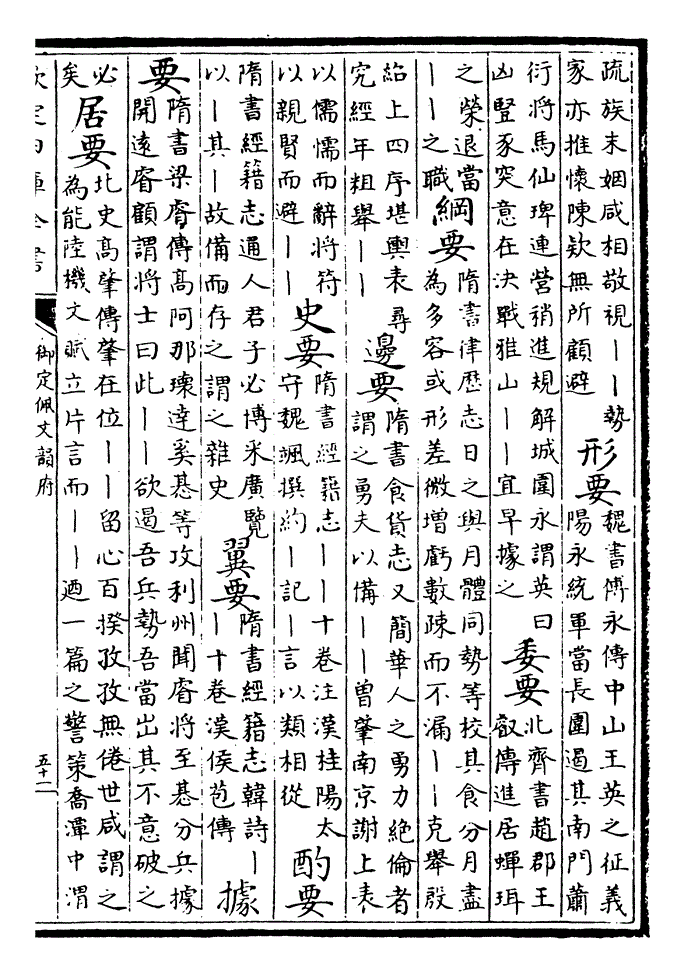 疏族末姻咸相敬視丨丨勢
家亦推懷陳欵無所顧避
形要
魏書傅永傳中山王英之征義
陽永統軍當長圍遏其南門蕭
衍將馬仙琕連營稍進規解城圍永謂英曰
凶豎豕突意在決戰雅山丨丨宜早據之
委要
北齊書趙郡王
叡傳進居蟬珥
之榮退當
丨丨之職
綱要
隋書律歷志日之與月體同勢等校其食分月盡
為多容或形差微增虧數疎而不漏丨丨克舉殷
紹上四序堪輿表尋
究經年粗舉丨丨
邊要
隋書食貨志又簡華人之勇力絕倫者
謂之勇夫以備丨丨曾肇南京謝上表
以儒懦而辭將符
以親賢而避丨丨
史要
隋書經籍志丨丨十卷注漢桂陽太
守魏颯撰約丨記丨言以類相從
酌要
隋書經籍志通人君子必博采廣覽
以丨其丨故備而存之謂之雜史
翼要
隋書經籍志韓詩丨
丨十卷漢侯苞傳
據
要
隋書梁睿傳高阿那瓌達奚惎等攻利州聞睿將至惎分兵據
開遠睿顧謂將士曰此丨丨欲遏吾兵勢吾當出其不意破之
必
矣
居要
北史高肇傳肇在位丨丨留心百揆孜孜無倦世咸謂之
為能陸機文賦立片言而丨丨廼一篇之警策喬潭中渭
欽定四庫全書
御定佩文韻府
五十一